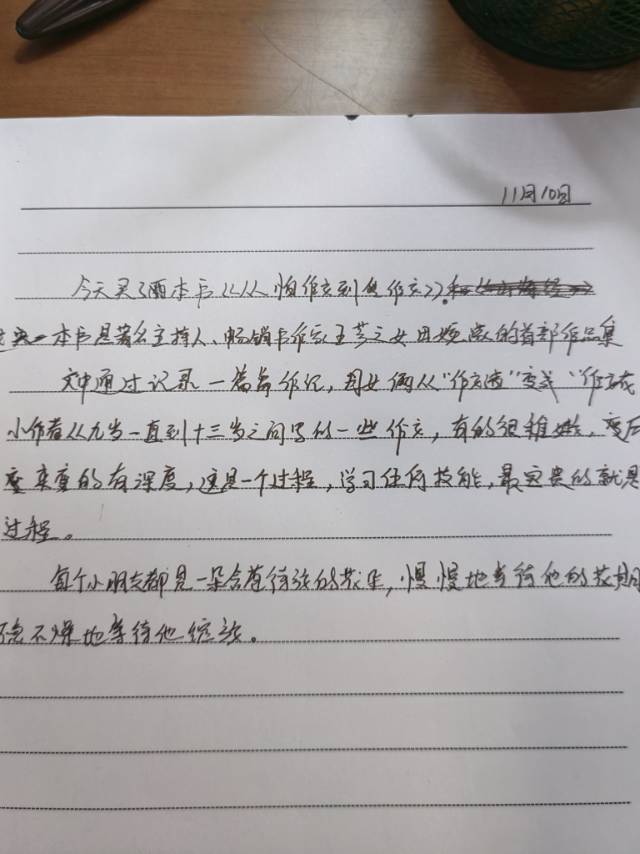 11月10日
今天买了两本书《从怕作文到爱作文》.
本书是著名主持人、畅销书作家王芳之女田颜溦的首部作品集
文中通过记录一篇篇作记,母女俩从“作文渣”变成“作文
小作者从九岁一直到十三岁之间写的一些作文,有的很稚嫩,
变来变的有深度,这是一个过程,学习任何技能,最宝贵的就是
过程。
每个小朋友都是一朵含苞待放的花朵,慢慢地等待他的花期
不燥地等待他绽放。